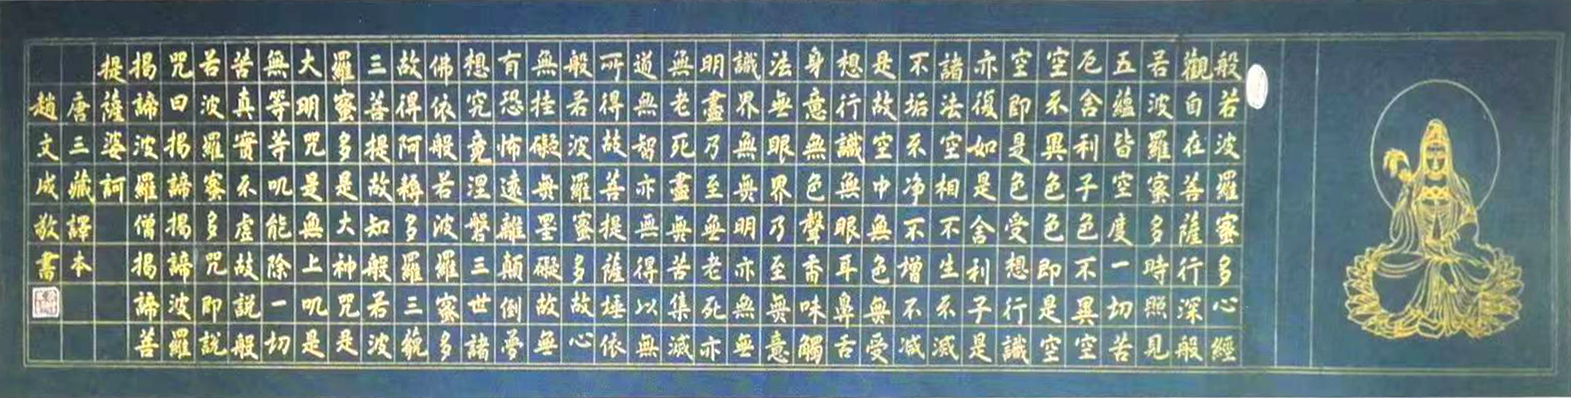 般若波羅蜜多心經
觀自在菩薩行深般
若波羅蜜多時照見
五蘊皆空度一切苦
厄舍利子色不異空
空不異色色即是空
空即是色受想行識
亦復如是舍利子是
諸法空相不生不滅
不垢不净不增不减
是故空中無色無受
想行識無眼耳鼻舌
身意無色聲香味觸
法無眼界乃至無意
識界無無明亦無無
明盡乃至無老死亦
無老死盡無苦集滅
道無智亦無得以無
所得故菩提薩埵依
般若波羅蜜多故心
無挂礙無墨礙故無
有恐怖遠離顛倒夢
想究竟涅磐三世諸
佛依般若波羅蜜多
故得阿耨多羅三藐
三菩提故知般若波
羅蜜多是大神咒是
大明咒是無上叽是
無等等叽能除一切
苦真實不虛故說般
若波羅蜜多咒即說
咒曰揭諦揭諦波羅
揭諦波羅僧揭諦菩
提薩婆訶
唐三藏譯本
趙文成敬書